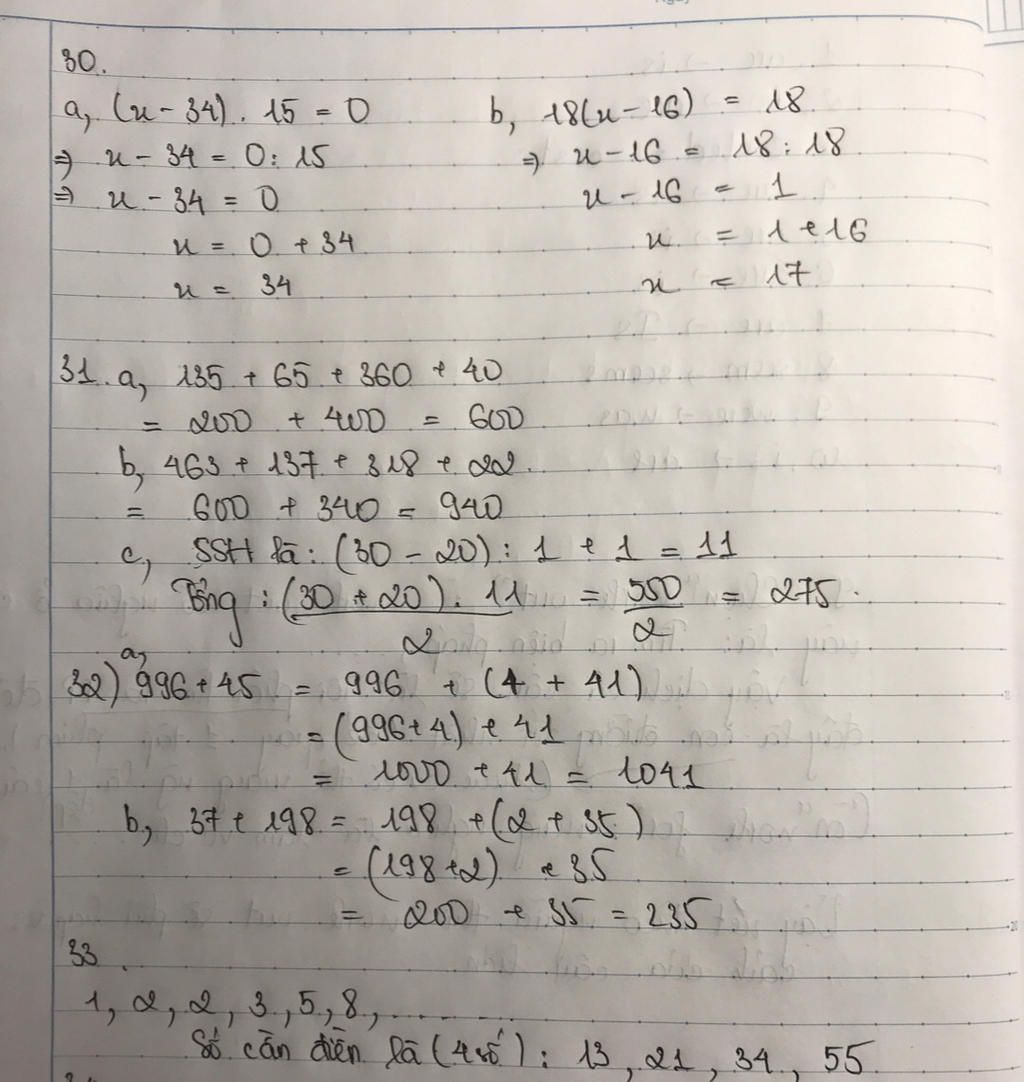 30.
a, (x - 34) . 15 = 0
⇒ x - 34 = 0 : 15
⇒ x - 34 = 0
x = 0 + 34
x = 34
b, 18(x - 16) = 18
⇒ x - 16 = 18 : 18
x - 16 = 1
x = 1 + 16
x = 17
31. a, 135 + 65 + 360 + 40
= 200 + 400 = 600
b, 463 + 137 + 318 + 22.
= 600 + 340 = 940
c, SSH là : (30 - 20) : 1 + 1 = 11
Tổng : (30 + 20) . 11 / 2 = 550 / 2 = 275.
32) a, 996 + 45 = 996 + (4 + 41)
= (996 + 4) + 41
= 1000 + 41 = 1041
b, 37 + 198 = 198 + (2 + 35)
= (198 + 2) + 35
= 200 + 35 = 235
33.
1, 2, 2, 3, 5, 8, .........
Số cần điền là (4 số) : 13, 21, 34, 55